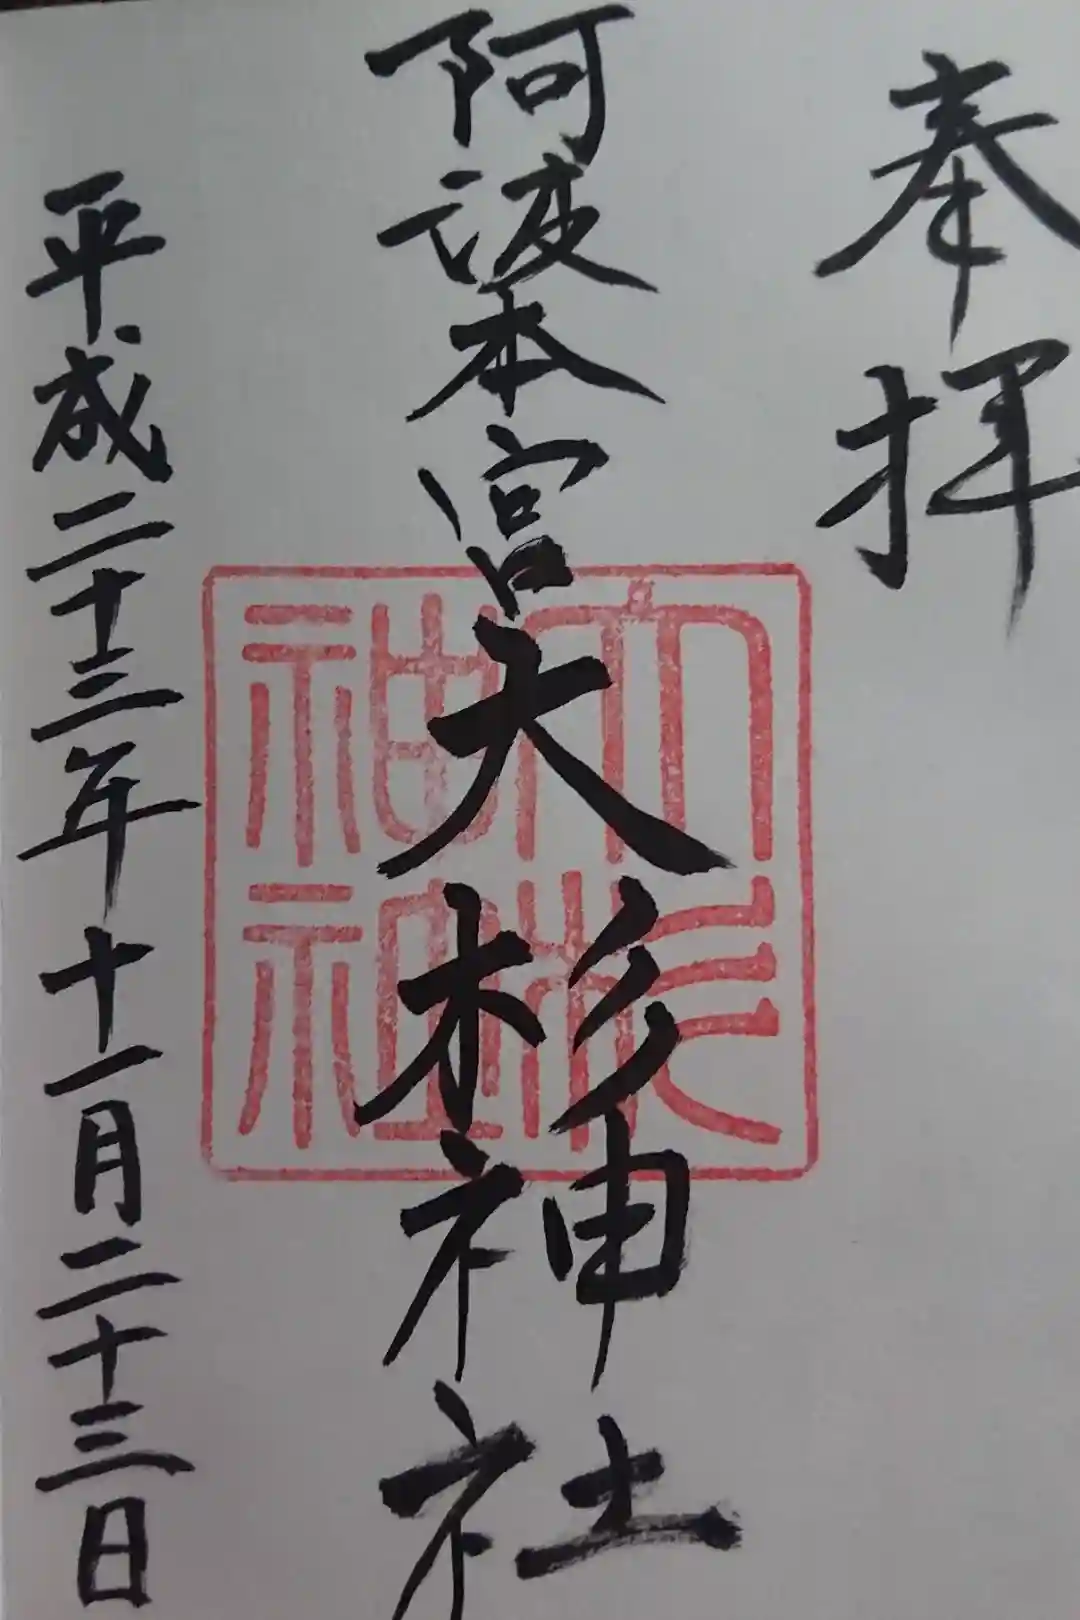 奉拝
阿波本宮大杉神社
大杉
神社
平成二十三年十一月二十三日